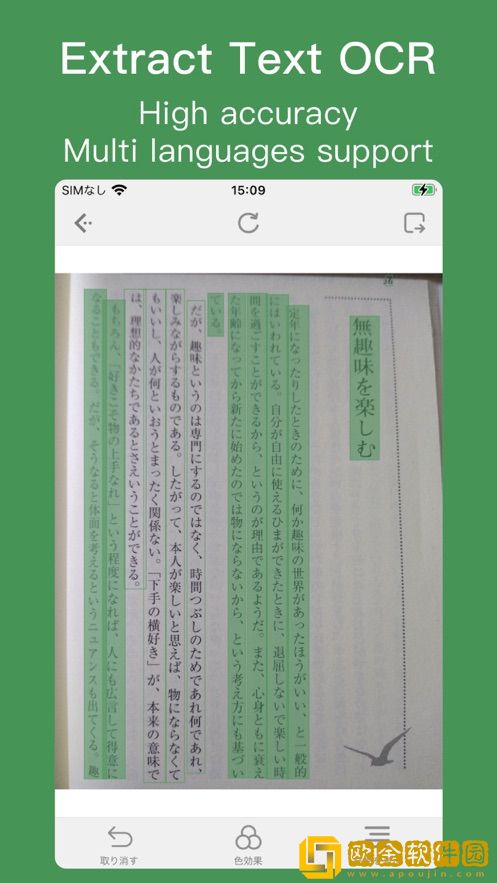 Extract Text OCR
High accuracy
Multi languages support
SIMなし
15:09
無趣味を楽しむ
定年になったりしたときのために、何か趣味の世界があったほうがいい、と一般的
にはいわれている。自分が自由に使えるひまができたときに、退屈しないで楽しい時
間を過ごすことができるから、というのが理由であるようだ。また、心身ともに衰え
た年齢になってから新たに始めたのでは物にならないから、という考え方にも基づい
ている。
だが、趣味というのは専門にするのではなく、時間つぶしのためであれ何であれ、
楽しみながらするものである。したがって、本人が楽しいと思えば、物にならなくて
もいいし、人が何といおうとまったく関係ない。「下手の横好き」が、本来の意味で
は、理想的なかたちであるとさえいうことができる。
もちろん、「好きこそ物の上手なれ」という程度になれば、人にも広言して得意に
なることもできる。だが、そうなると体面を考えるというニュアンスも出てくる。趣
取り消す
色効果
欧金软件园
www.apoujin.com